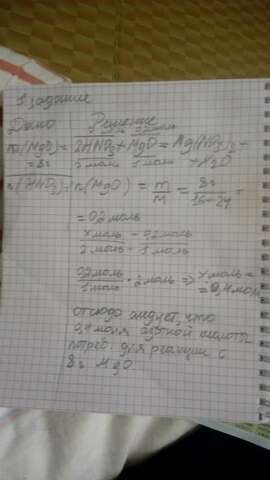 1 задание
Дано Решение
m(MgO)= 2HNO3+MgO=Mg(NO3)2+
=8г 2 моль 1 моль +H2O
n(HNO3)- n(MgO) = m/M = 8г/16+24 =
=0,2 моль
x моль - 0,2 моль
2 моль - 1 моль
0,2 моль/1 моль · 2 моль => x моль =
= 0,4 моль
отсюдо следует, что
0,4 моля азотной кислоты
потреб. для реакции с
8г MgO